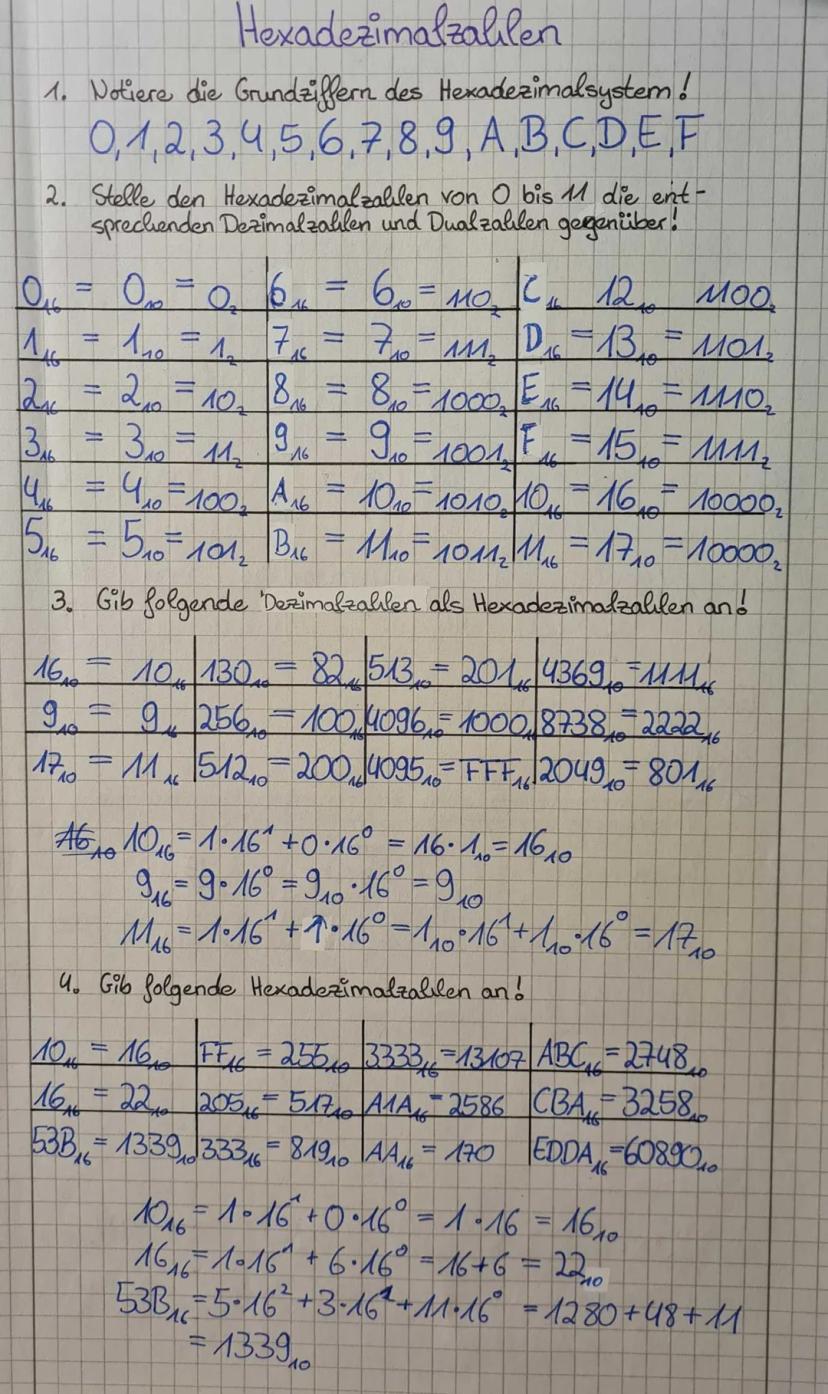 Hexadezimalzahlen
1. Notiere die Grundziffern des Hexadezimalsystem!
0,1,2,3,4,5,6,7,8,9,A,B,C,D,E,F
2. Stelle den Hexadezimalzahlen von 0 bis 11 die ent-
sprechenden Dezimalzahlen und Dualzahlen gegenüber!
0₁₆ = 0₁₀ = 0₂ 6₁₆ = 6₁₀ = 110₂ C₁₆ 12₁₀ 1100₂
1₁₆ = 1₁₀ = 1₂ 7₁₆ = 7₁₀ = 111₂ D₁₆ = 13₁₀ = 1101₂
2₁₆ = 2₁₀ = 10₂ 8₁₆ = 8₁₀ = 1000₂ E₁₆ = 14₁₀ = 1110₂
3₁₆ = 3₁₀ = 11₂ 9₁₆ = 9₁₀ = 1001₂ F₁₆ = 15₁₀ = 1111₂
4₁₆ = 4₁₀ = 100₂ A₁₆ = 10₁₀ = 1010₂ 10₁₆ = 16₁₀ = 10000₂
5₁₆ = 5₁₀ = 101₂ B₁₆ = 11₁₀ = 1011₂ 11₁₆ = 17₁₀ = 10000₂
3. Gib folgende Dezimalzahlen als Hexadezimalzahlen an!
16₁₀ = 10₁₆ 130₁₀ = 82₁₆ 513₁₀ = 201₁₆ 4369₁₀ = 1111₁₆
9₁₀ = 9₁₆ 256₁₀ = 100₁₆ 4096₁₀ = 1000₁₆ 8738₁₀ = 2222₁₆
17₁₀ = 11₁₆ 512₁₀ = 200₁₆ 4095₁₀ = FFF₁₆ 2049₁₀ = 801₁₆
16₁₀ 10₁₆ = 1·16¹ + 0·16⁰ = 16·1₁₀ = 16₁₀
9₁₆ = 9·16⁰ = 9₁₀·16⁰ = 9₁₀
11₁₆ = 1·16¹ + 1·16⁰ = 1₁₀·16¹ + 1₁₀·16⁰ = 17₁₀
4. Gib folgende Hexadezimalzahlen an!
10₁₆ = 16₁₀ FF₁₆ = 255₁₀ 3333₁₆ = 13107 ABC₁₆ = 2748₁₀
16₁₆ = 22₁₀ 205₁₆ = 517₁₀ A1A₁₆ = 2586 CBA₁₆ = 3258₁₀
53B₁₆ = 1339₁₀ 333₁₆ = 819₁₀ AA₁₆ = 170 EDDA₁₆ = 60890₁₀
10₁₆ = 1·16¹ + 0·16⁰ = 1·16 = 16₁₀
16₁₆ = 1·16¹ + 6·16⁰ = 16+6 = 22₁₀
53B₁₆ = 5·16² + 3·16¹ + 11·16⁰ = 1280+48+11
= 1339₁₀